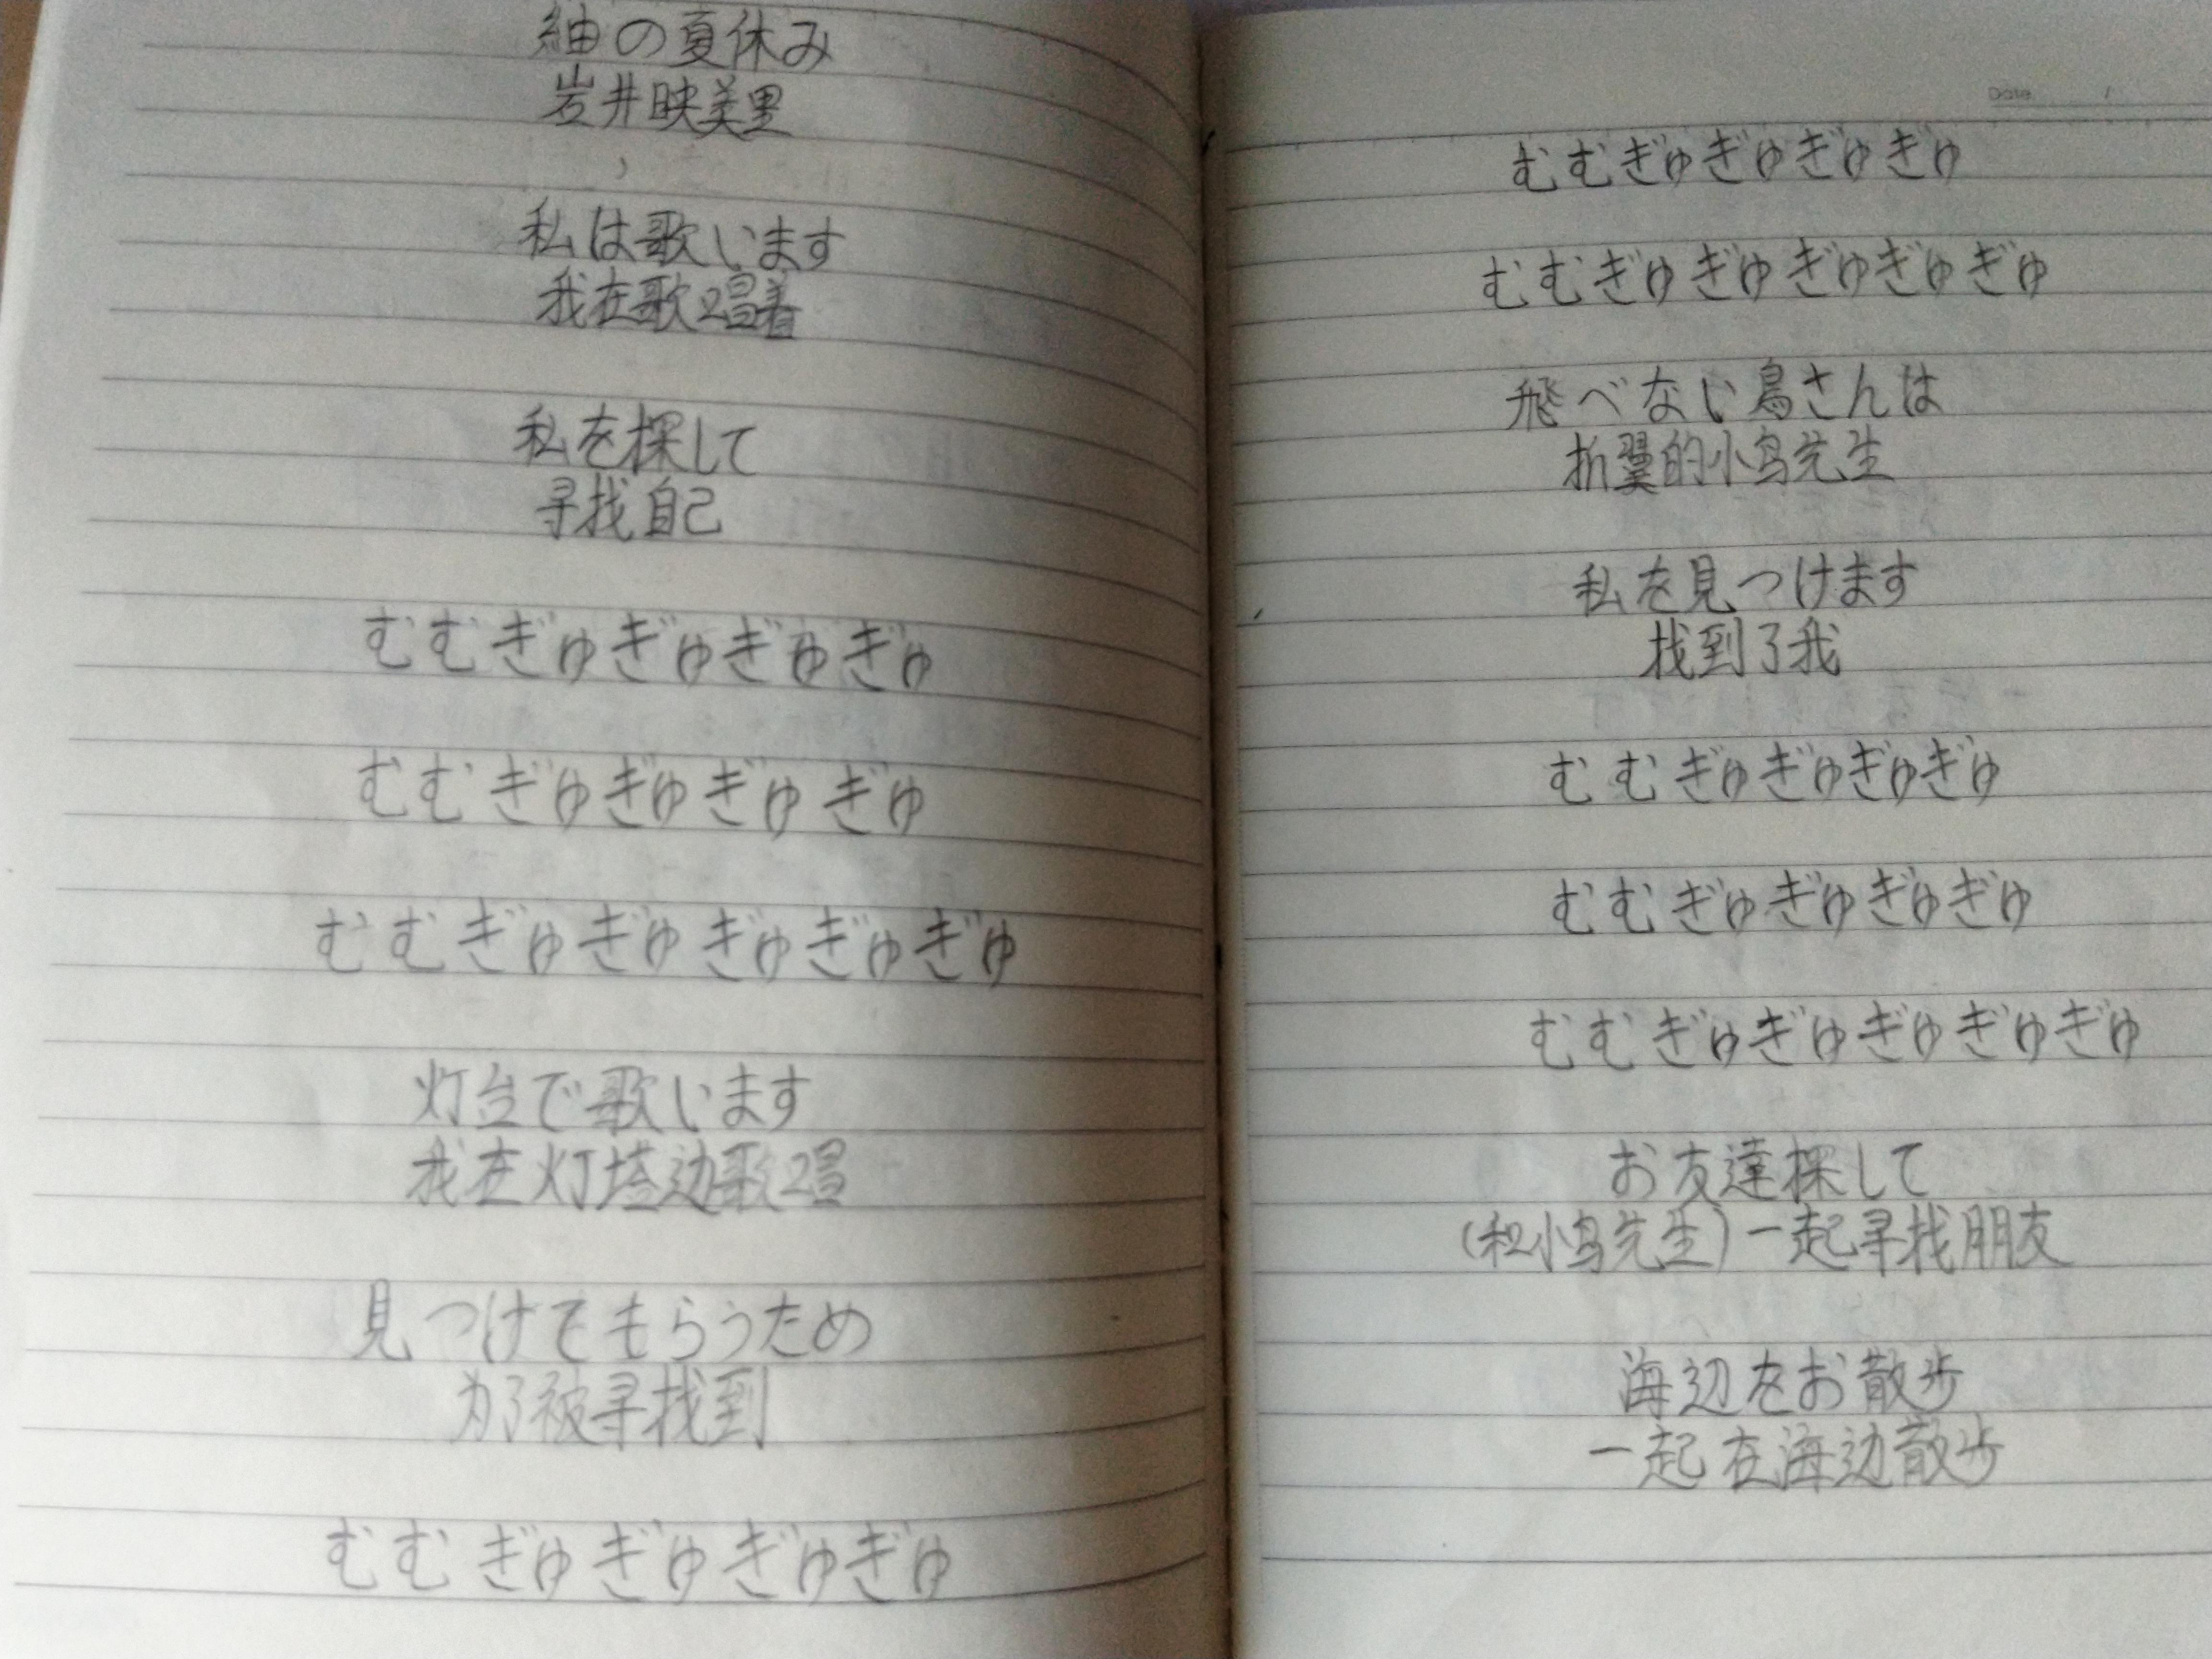 紬の夏休み
岩井映美里
私は歌います
我在歌唱着
私を探して
寻找自己
むむぎゅぎゅぎゅぎゅ
むむぎゅぎゅぎゅぎゅ
むむぎゅぎゅぎゅぎゅぎゅ
灯台で歌います
我在灯塔边歌唱
見つけてもらうため
为了被寻找到
むむぎゅぎゅぎゅぎゅ
Date /
むむぎゅぎゅぎゅぎゅ
むむぎゅぎゅぎゅぎゅぎゅ
飛べない鳥さんは
折翼的小鸟先生
私を見つけます
找到了我
むむぎゅぎゅぎゅぎゅ
むむぎゅぎゅぎゅぎゅ
むむぎゅぎゅぎゅぎゅぎゅ
お友達探して
(和小鸟先生)一起寻找朋友
海辺をお散歩
一起在海边散步